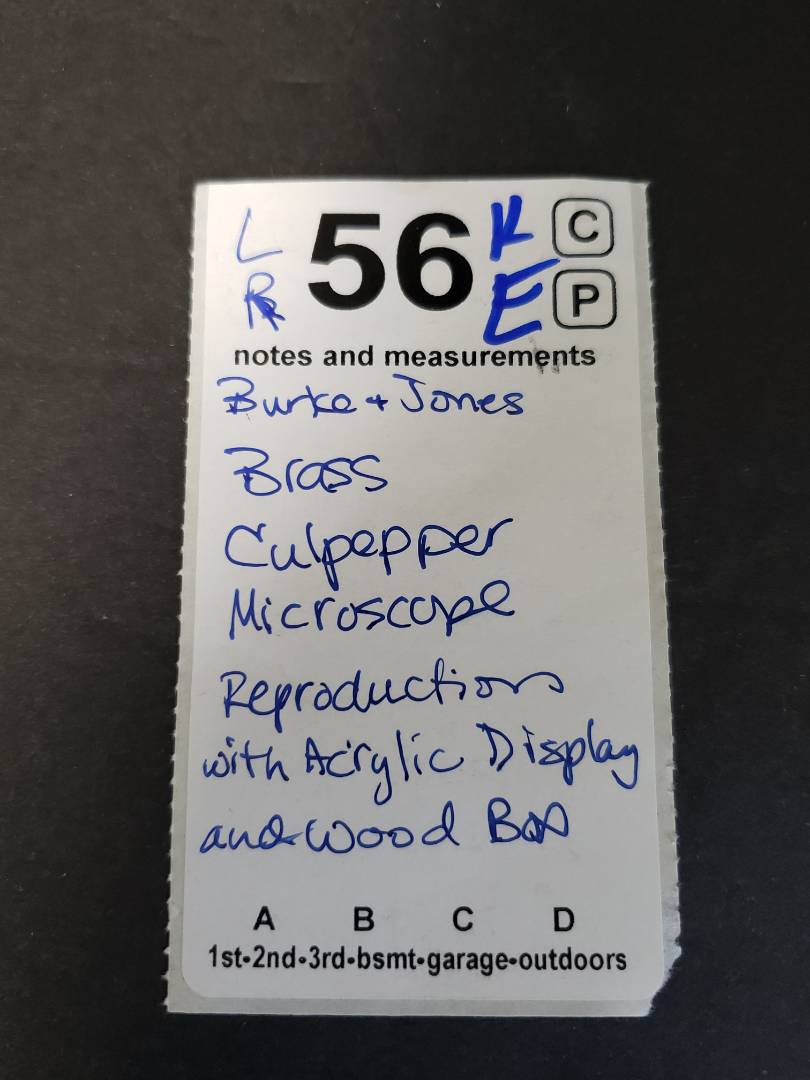 L 56 K C
R E P
notes and measurements
Burke + Jones
Brass
Culpepper
Microscope
Reproductions
with Acrylic Display
and Wood Box
A B C D
1st-2nd-3rd-bsmt-garage-outdoors